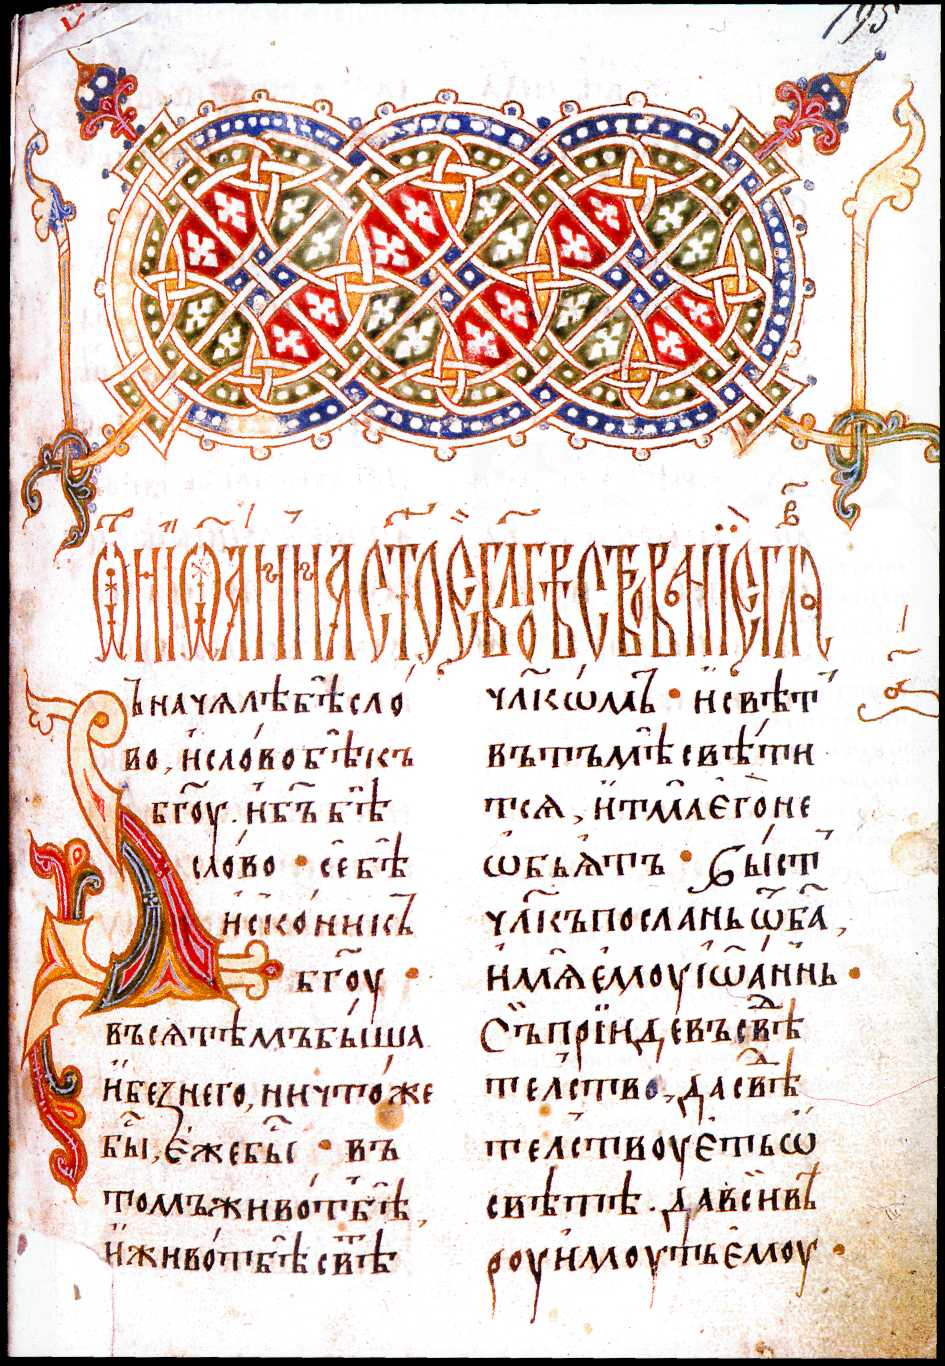 195
Ѿ їѡанна ст҃ое еѵⷢ҇лїе ст҃вованїе гла в҃
Въ начѧлѣ бⷺ҇ѣ сло
во, и слово бⷺ҇ѣ къ
бг҃оу. и бъ҃ бⷺ҇ѣ
слово • се бⷺ҇ѣ
искони къ
бг҃оу •
въсѧ тѣмъ быша
и беꙁ него, ничтоже
бы҃, еже бы҃ • въ
томъ живот бѣ,
и живот бѣ свѣ
чл҃кѡмъ • и свѣт
въ тъмѣ свѣти
тсѧ, и тма его не
ѡбьѧтъ • быст
чл҃къ посланъ ѿ ба҃,
имѧ емоу їѡаннь •
Съ прїиде въ свѣⷣ
телство, да свѣⷣ
телствоуеть ѡ
свѣтѣ. да вси вѣ
роу имоуть емоу •